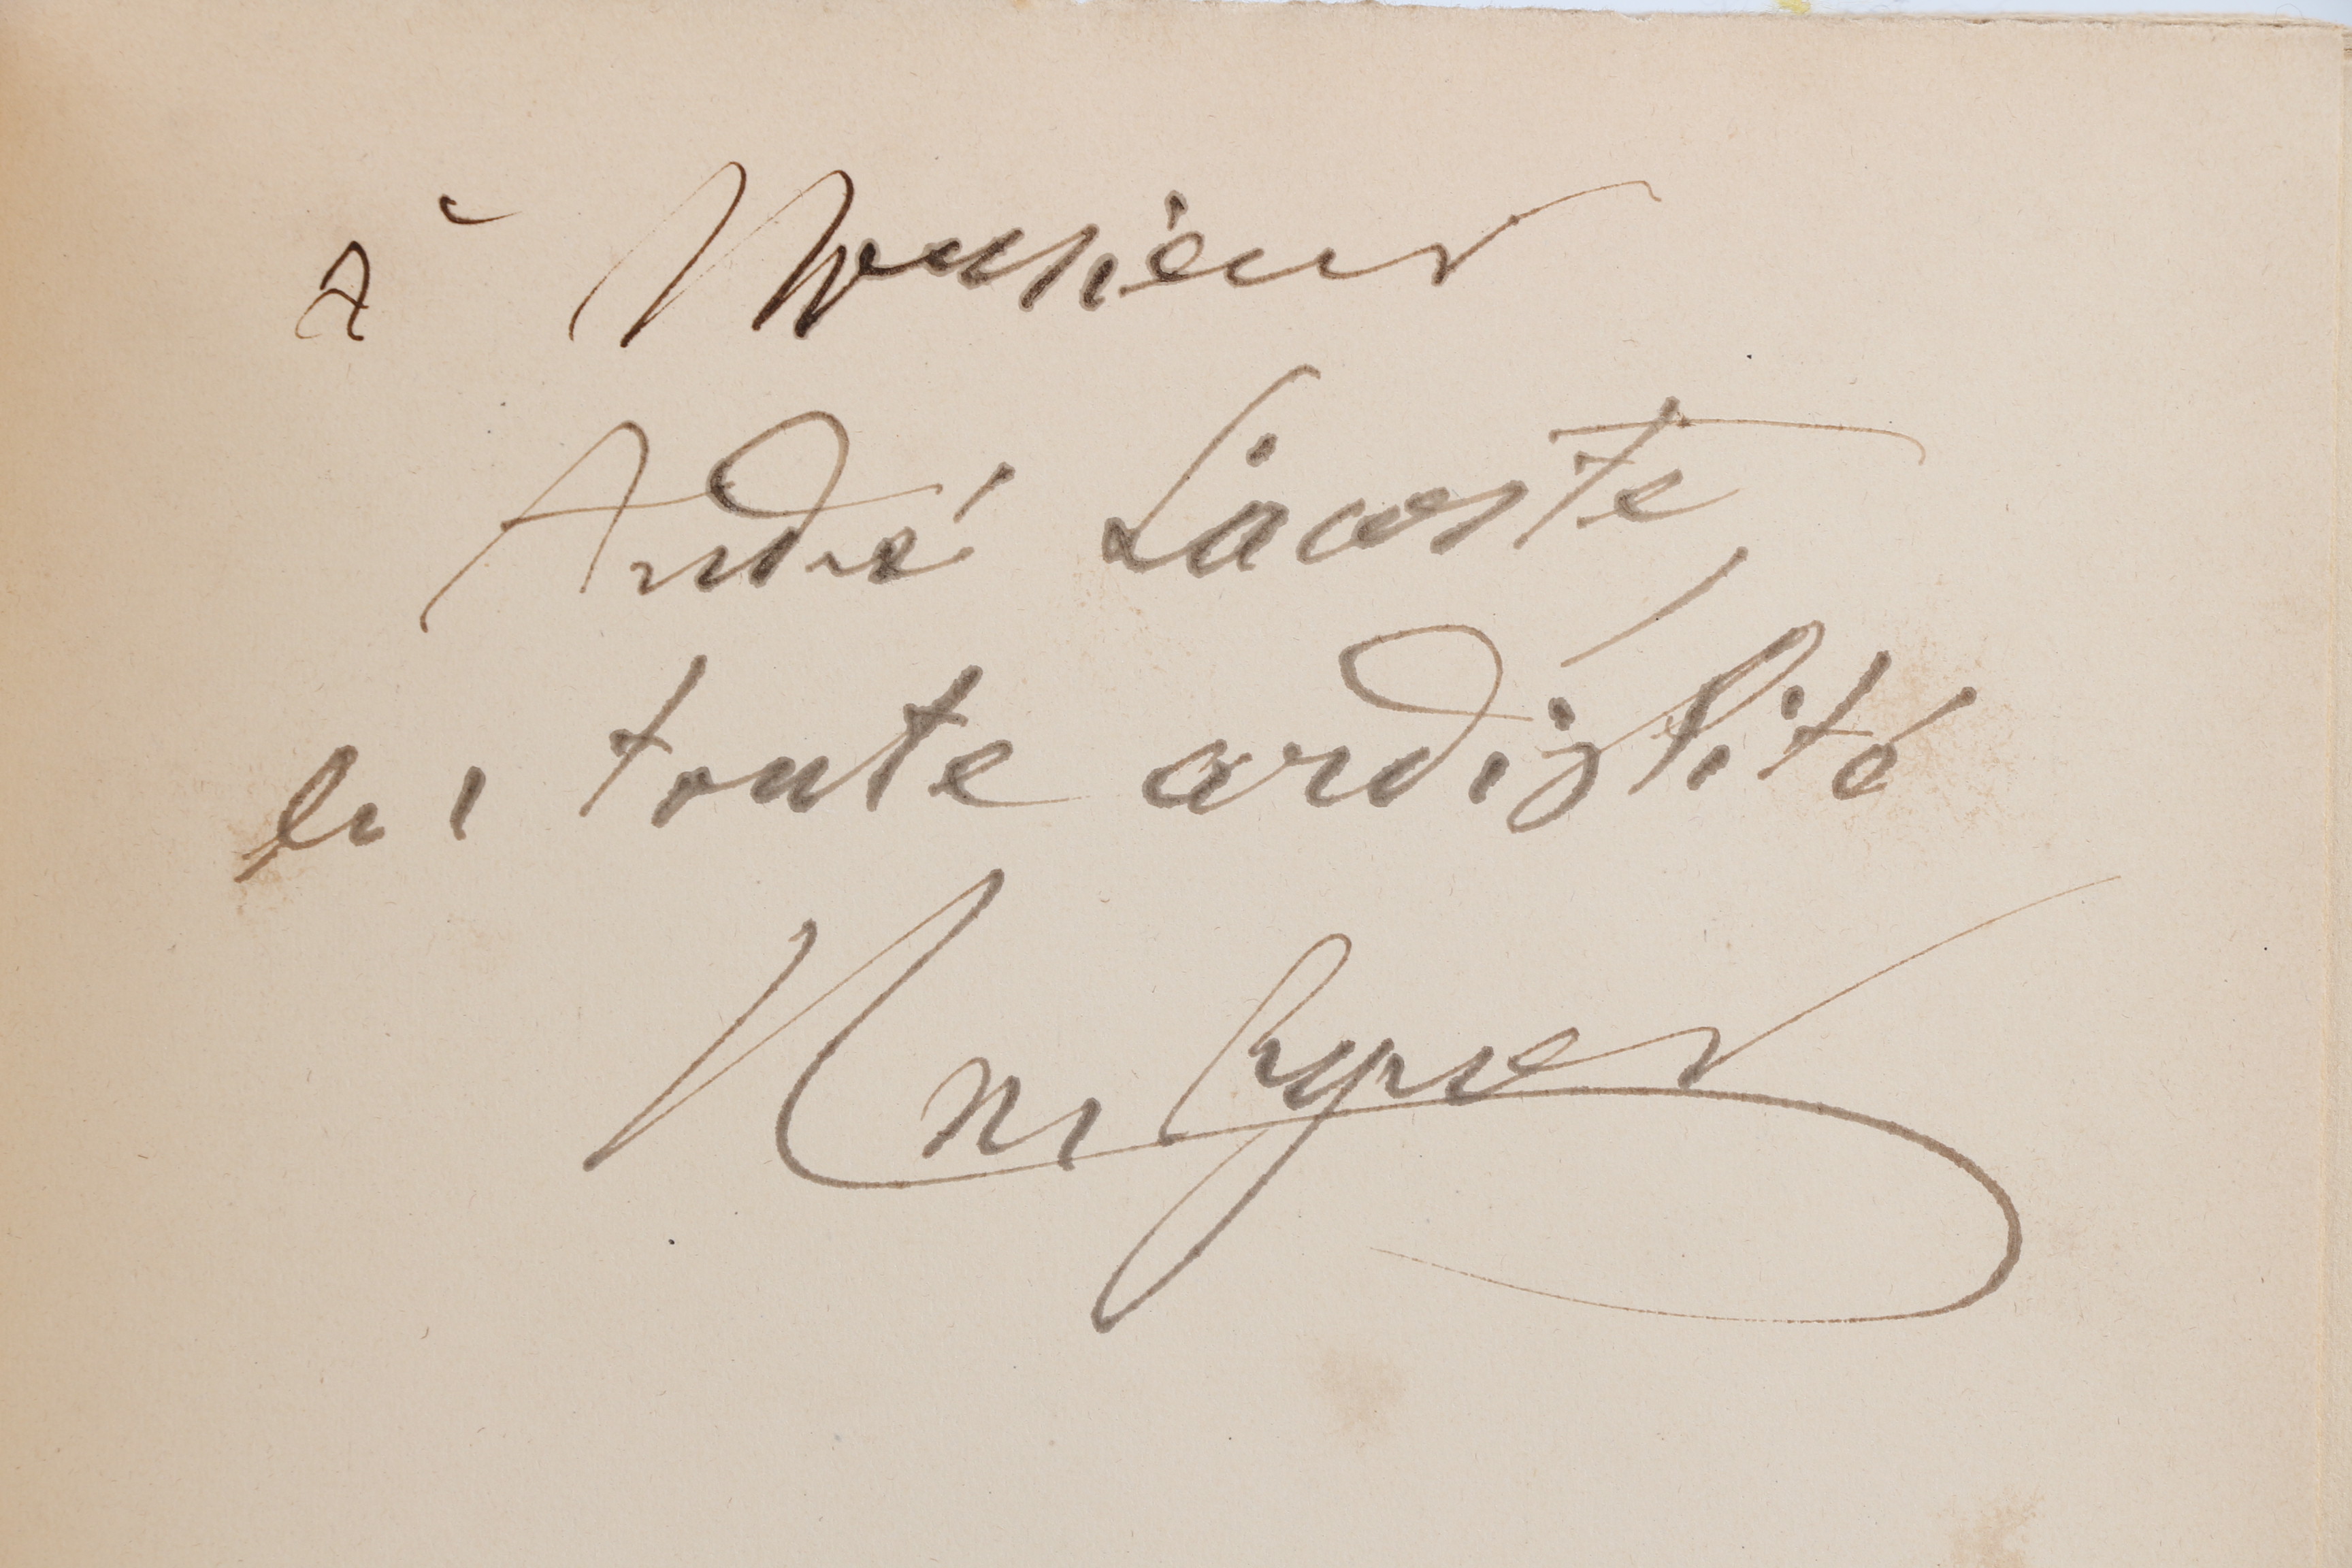 à Monsieur
André Lacoste
en toute cordialité
Han Ryner